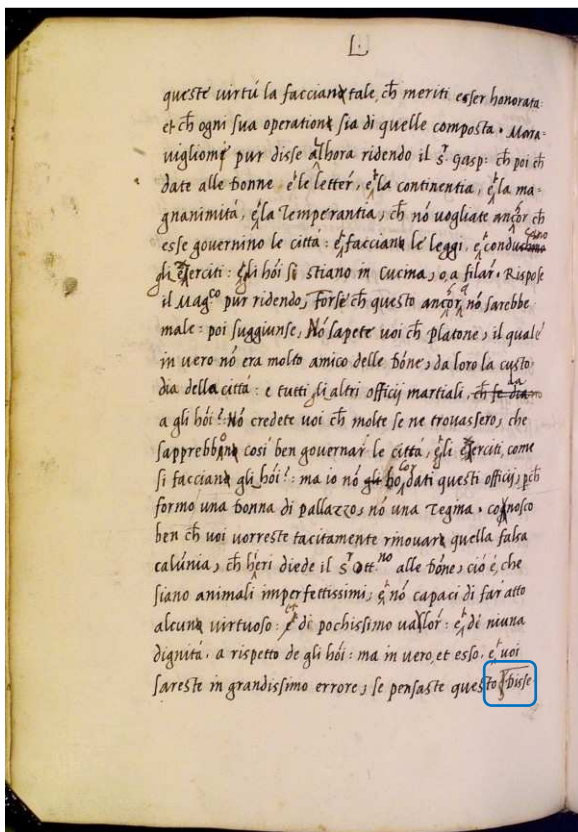 L.
queste uirtú la faccian tale, ch̃ meriti esser honorata:
et ch̃ ogni sua operation sia di quelle composta. Mara-
uigliomi pur disse alhora ridendo il s.r Gasp: ch̃ poi ch̃
date alle Donne e le letter, et la continentia, et la ma-
gnanimitá, et la Temperantia, ch̃ nó uogliate anchor ch̃
esse gouernino le cittá: et faccian le leggi, et conducano
gli exerciti: et gli hói si stiano in Cucina, o, a filar. Rispose
il Mag.co pur ridendo, forse ch̃ questo anchora nó sarebbe
male: poi suggiunse, Nó sapete uoi ch̃ Platone, il quale
in uero nó era molto amico delle Dóne, da loro la custo
dia della cittá: e tutti gli altri officij martiali, da
a gli hói? Nó credete uoi ch̃ molte se ne trouassero, che
sapprebbono cosi ben gouernar le cittá, et gli exerciti, come
si faccian gli hói? ma io nó gli ho dati questi officij, p̱ch̃
formo una Donna di pallazzo, nó una Regina. conosco
ben ch̃ uoi uorreste tacitamente rinouar quella falsa
calúnia, ch̃ hieri diede il s.r Ott.no alle Dóne, ció é, che
siano animali imperfettissimi, et nó capaci di far atto
alcun uirtuoso: et di pochissimo ualor: et di niuna
dignitá, a rispetto de gli hói: ma in uero, et esso, et uoi
sareste in grandissimo errore, se pensaste questo Disse